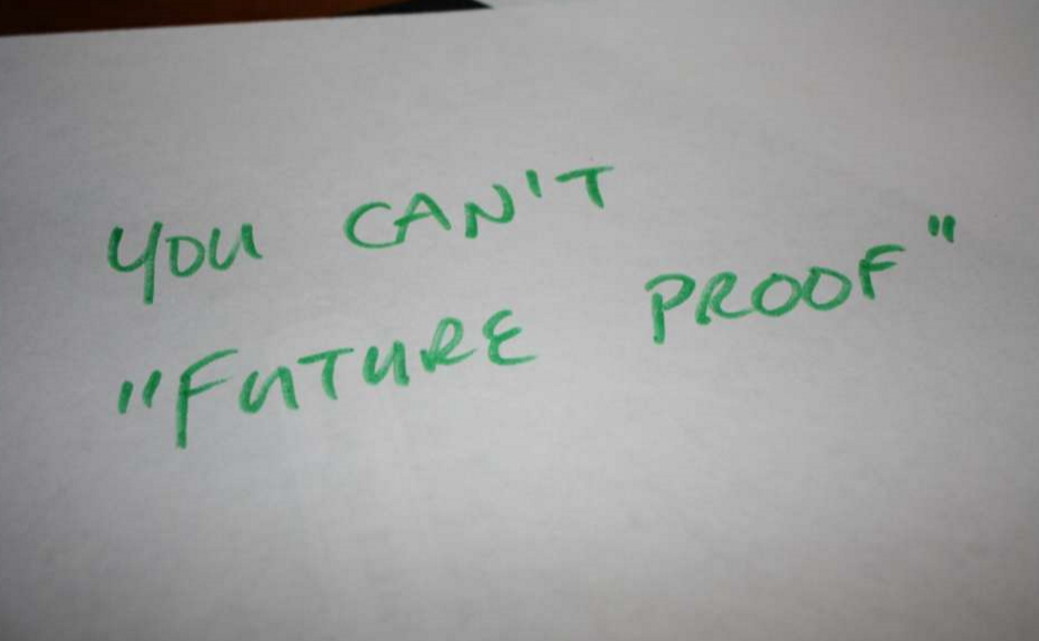 YOU CAN'T
"FUTURE PROOF"